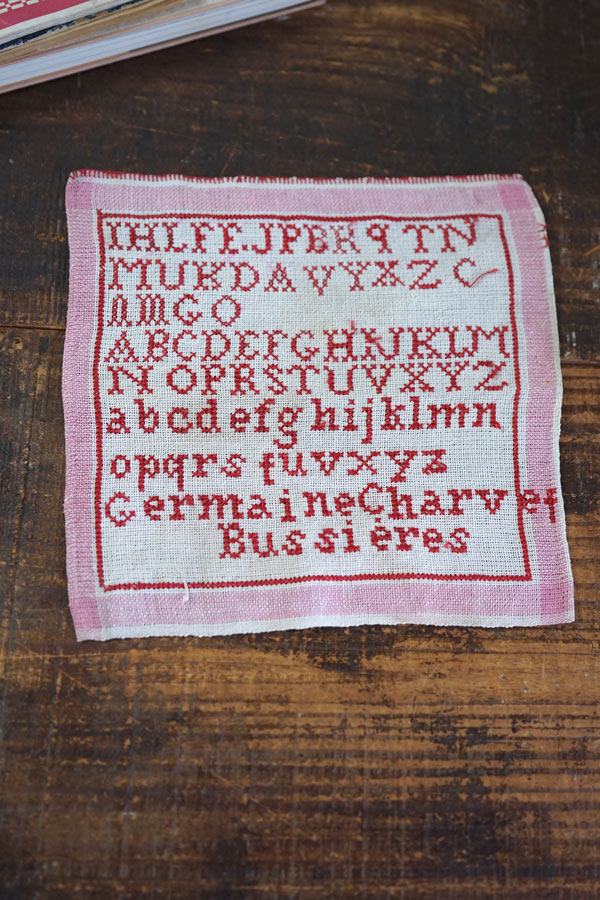 IHLFE.JPBRqTN
MUKDAVYXZ C
nmGO
ABCDEFGHNJKLM
NOPRSTUVXYZ
abcdefghijklmn
opqrs tuvxyz
GermaineCharvet
Bussières